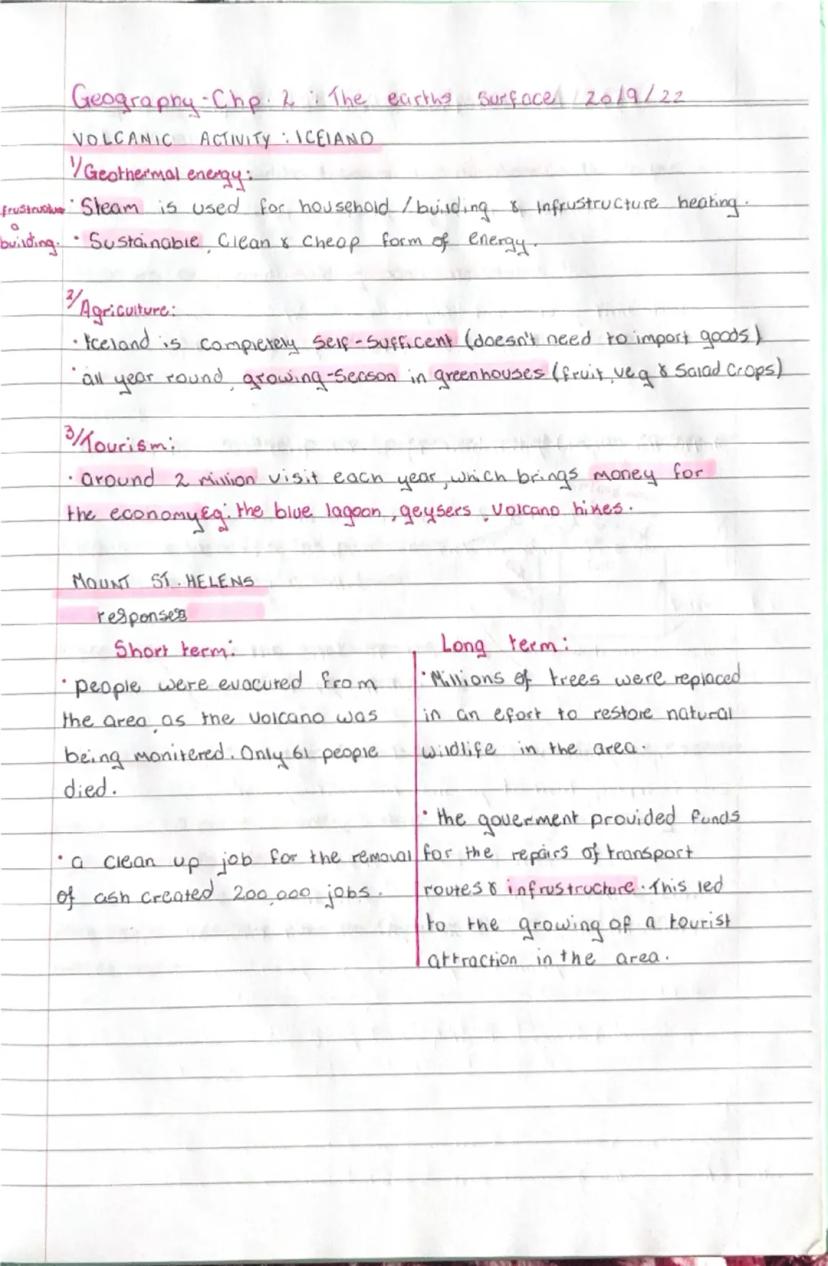 Geography - Chp. 2 : The earths surface 20/9/22
VOLCANIC ACTIVITY : ICELAND
1/Geothermal energy:
· Steam is used for household / building & infrustructure heating.
building.
· Sustainable, Clean & cheap form of energy.
2/Agriculture:
· Iceland is completely self-sufficent (doesn't need to import goods)
· all year round, growing-season in greenhouses (fruit, veg & salad crops)
3/Tourism:
· around 2 million visit each year, which brings money for
the economy Eg: the blue lagoon, geysers, volcano hikes.
MOUNT ST. HELENS
responses
Short term:
· people were evacured from
the area, as the volcano was
being monitered. Only 61 people
died.
· a clean up job for the removal
of ash created 200,000 jobs.
Long term:
· Millions of trees were replaced
in an efort to restore natural
wildlife in the area.
· the goverment provided funds
for the repairs of transport
routes & infrustructure. This led
to the growing of a tourist
attraction in the area.